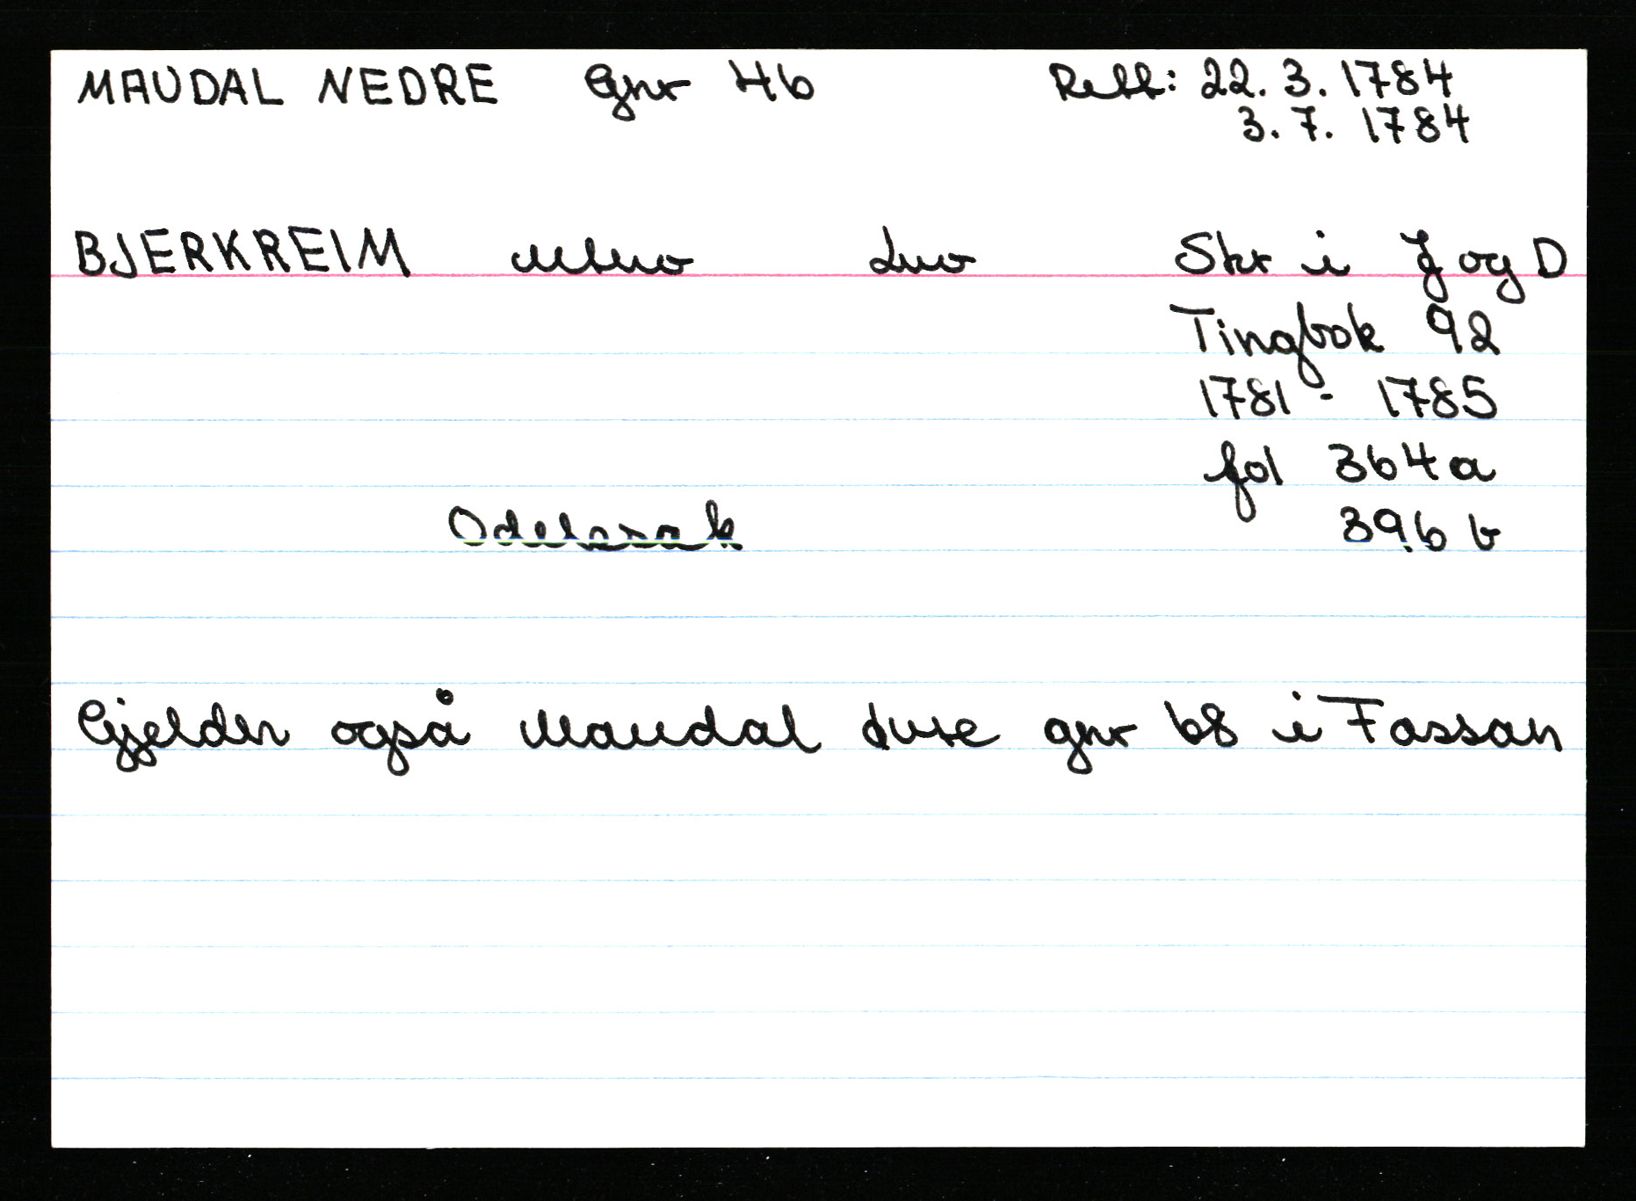 MAUDAL NEDRE Gnr 46 Rett: 22. 3. 1784
3. 7. 1784
BJERKREIM Skr i J og D
Tingbok 92
1781 - 1785
fol 364a
Odelssak 396 b
Gjelder også Maudal øvre gnr 68 i Fossan